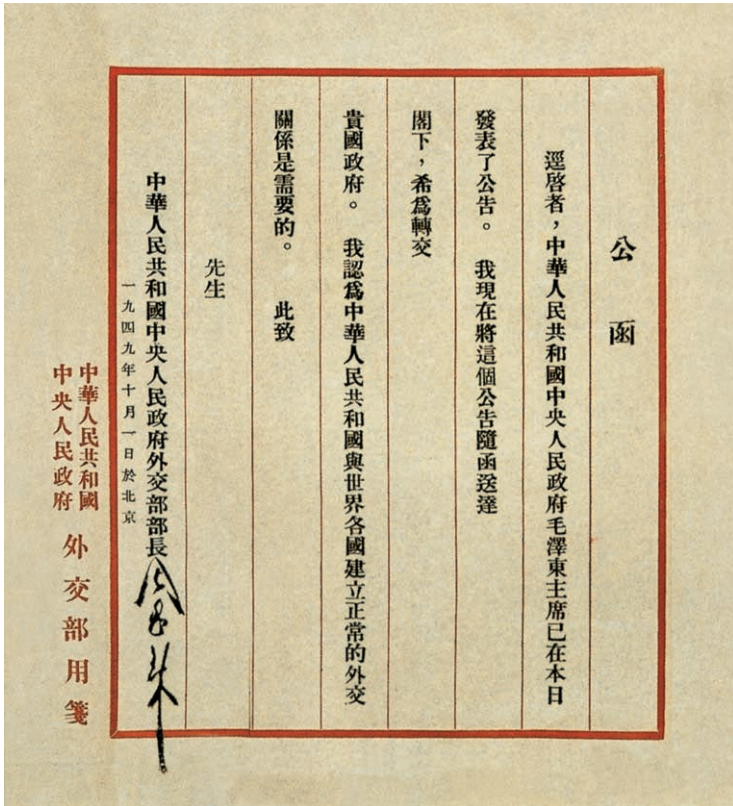 公函
逕啓者，中華人民共和國中央人民政府毛澤東主席已在本日
發表了公告。 我現在將這個公告隨函送達
閣下，希爲轉交
貴國政府。 我認爲中華人民共和國與世界各國建立正常的外交
關係是需要的。 此致
先生
中華人民共和國中央人民政府外交部部長 周恩來
一九四九年十月一日於北京
中華人民共和國
中央人民政府
外交部用箋